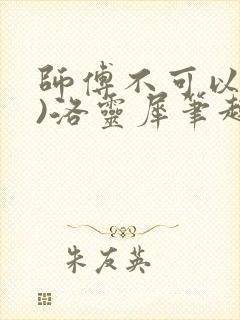 師傅不可以
)洛靈犀筆趣
朱友英